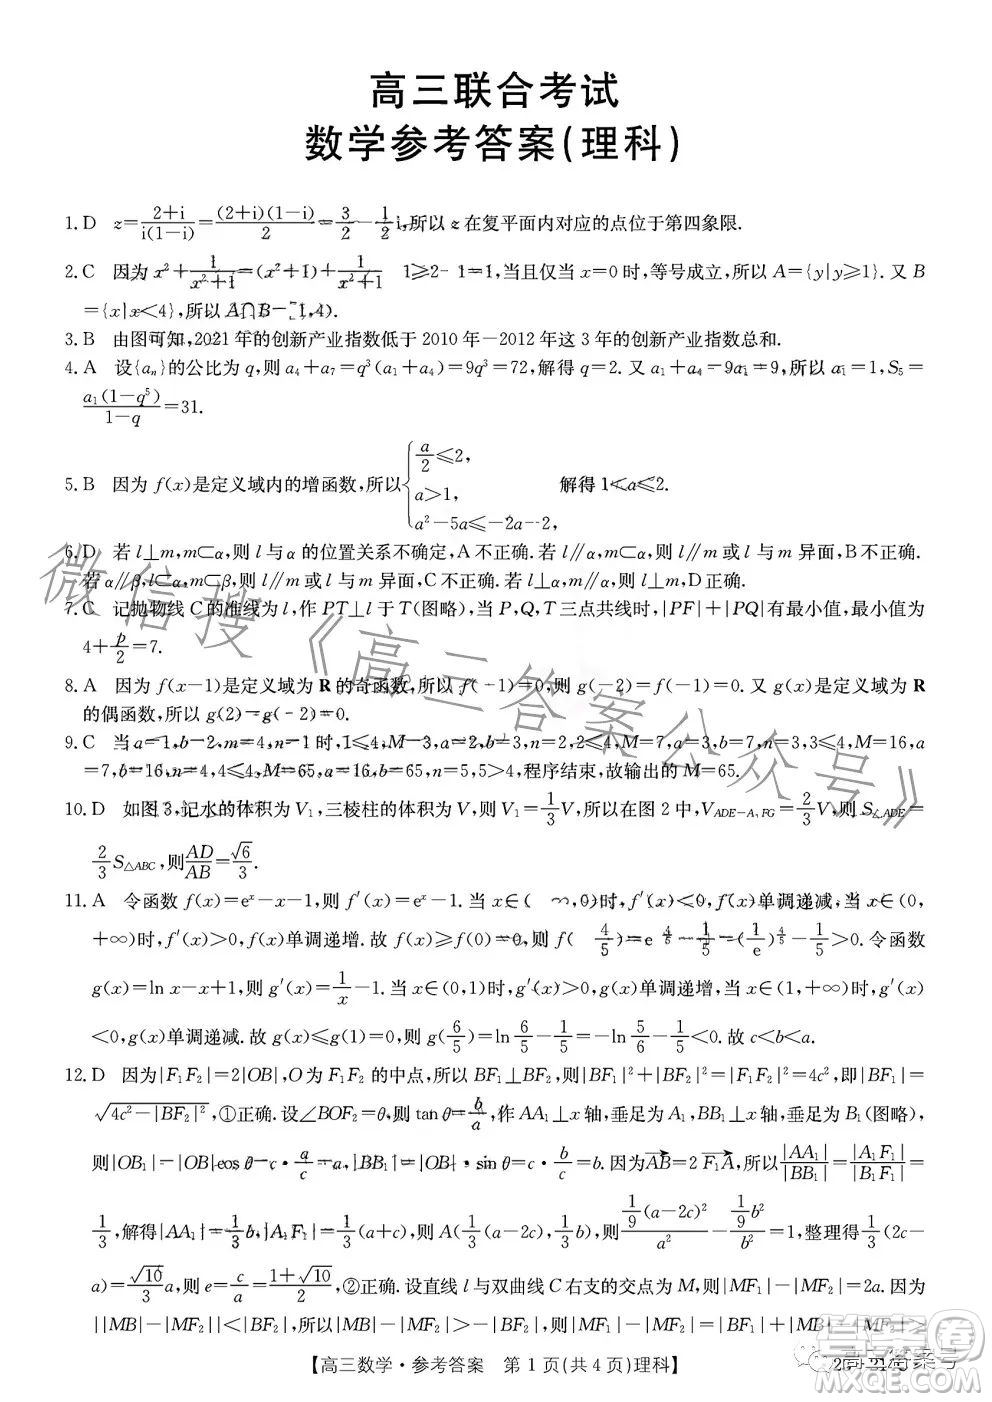 高三联合考试
数学参考答案(理科)
1. D z=\frac{2+i}{i(1-i)}=\frac{(2+i)(1-i)}{2}=\frac{3}{2}-\frac{1}{2}i,所以 z 在复平面内对应的点位于第四象限.
2. C 因为 x²+\frac{1}{x²+1}=(x²+1)+\frac{1}{x²+1} 1≥2-1=1,当且仅当 x=0 时,等号成立,所以 A={y|y≥1}.又 B
={x|x<4},所以 A∩B=[1,4).
3. B 由图可知,2021 年的创新产业指数低于 2010 年—2012 年这 3 年的创新产业指数总和.
4. A 设{aₙ}的公比为 q,则 a₄+a₇=q³(a₁+a₄)=9q³=72,解得 q=2.又 a₁+a₄=9a₁=9,所以 a₁=1,S₅=
\frac{a₁(1-q⁵)}{1-q}=31.
5. B 因为 f(x)是定义域内的增函数,所以{\frac{a}{2}≤2, a>1, a²-5a≤-2a-2, 解得 1<a≤2.
6. D 若 l⊥m,m⊂α,则 l 与 α 的位置关系不确定,A 不正确.若 l∥α,m⊂α,则 l∥m 或 l 与 m 异面,B 不正确.
若 α∥β,l⊂α,m⊂β,则 l∥m 或 l 与 m 异面,C 不正确.
7. C 记抛物线 C 的准线为 l,作 PT⊥l 于 T(图略),当 P,Q,T 三点共线时,|PF|+|PQ|有最小值,最小值为
4+\frac{p}{2}=7.
8. A 因为 f(x-1)是定义域为 R 的奇函数,所以 f(-1)=0,则 g(-2)=f(-1)=0.又 g(x)是定义域为 R
的偶函数,所以 g(2)=g(-2)=0.
9. C 当 a=1,b=2,m=4,n=1 时,1≤4,M=3,a=2,b=3,n=2,2≤4,M=7,a=3,b=7,n=3,3≤4,M=16,a
=7,b=16,n=4,4≤4,M=65,a=16,b=65,n=5,5>4,程序结束,故输出的 M=65.
10. D 如图 3,记水的体积为 V₁,三棱柱的体积为 V,则 V₁=\frac{1}{3}V,所以在图 2 中,V_{ADE-A₁FG}=\frac{2}{3}V,则 S_{△ADE}=
\frac{2}{3}S_{△ABC},则\frac{AD}{AB}=\frac{√6}{3}.
11. A 令函数 f(x)=eˣ-x-1,则 f′(x)=eˣ-1.当 x∈(-∞,0)时,f′(x)<0,f(x)单调递减,当 x∈(0,
+∞)时,f′(x)>0,f(x)单调递增.故 f(x)≥f(0)=0,则 f(-\frac{4}{5})=e^{-\frac{4}{5}}-\frac{1}{5}=(\frac{1}{e})^{\frac{4}{5}}-\frac{1}{5}>0.令函数
g(x)=ln x-x+1,则 g′(x)=\frac{1}{x}-1.当 x∈(0,1)时,g′(x)>0,g(x)单调递增,当 x∈(1,+∞)时,g′(x)
<0,g(x)单调递减.故 g(x)≤g(1)=0,则 g(\frac{6}{5})=ln\frac{6}{5}-\frac{1}{5}=-ln\frac{5}{6}-\frac{1}{5}<0.故 c<b<a.
12. D 因为|F₁F₂|=2|OB|,O 为 F₁F₂ 的中点,所以 BF₁⊥BF₂,所以|BF₁|²+|BF₂|²=|F₁F₂|²=4c²,即|BF₁|=
\sqrt{4c²-|BF₂|²},①正确.设∠BOF₂=θ,则 tan θ=\frac{b}{a},作 AA₁⊥x 轴,垂足为 A₁,BB₁⊥x 轴,垂足为 B₁(图略),
则|OB₁|=|OB|cos θ=c·\frac{a}{c}=a,|BB₁|=|OB|·sin θ=c·\frac{b}{c}=b.因为\overrightarrow{AB}=2\overrightarrow{F₁A},所以\frac{|AA₁|}{|BB₁|}=\frac{|A₁F₁|}{|B₁F₁|}=
\frac{1}{3},解得|AA₁|=\frac{1}{3}b,|A₁F₁|=\frac{1}{3}(a+c),则 A(\frac{1}{3}(a-2c),\frac{1}{3}b),则\frac{\frac{1}{9}(a-2c)²}{a²}-\frac{\frac{1}{9}b²}{b²}=1,整理得\frac{1}{3}(2c-
a)=\frac{√10}{3}a,则 e=\frac{c}{a}=\frac{1+√10}{2},②正确.设直线 l 与双曲线 C 右支的交点为 M,则|MF₁|-|MF₂|=2a.因为
||MB|-|MF₂||<|BF₂|,所以|MB|-|MF₂|>-|BF₂|,则|MF₁|-|MF₂|=|BF₁|+|MB|-|MF₂|>
【高三数学·参考答案 第 1 页(共 4 页)理科】
微信搜《高三答案公众号》